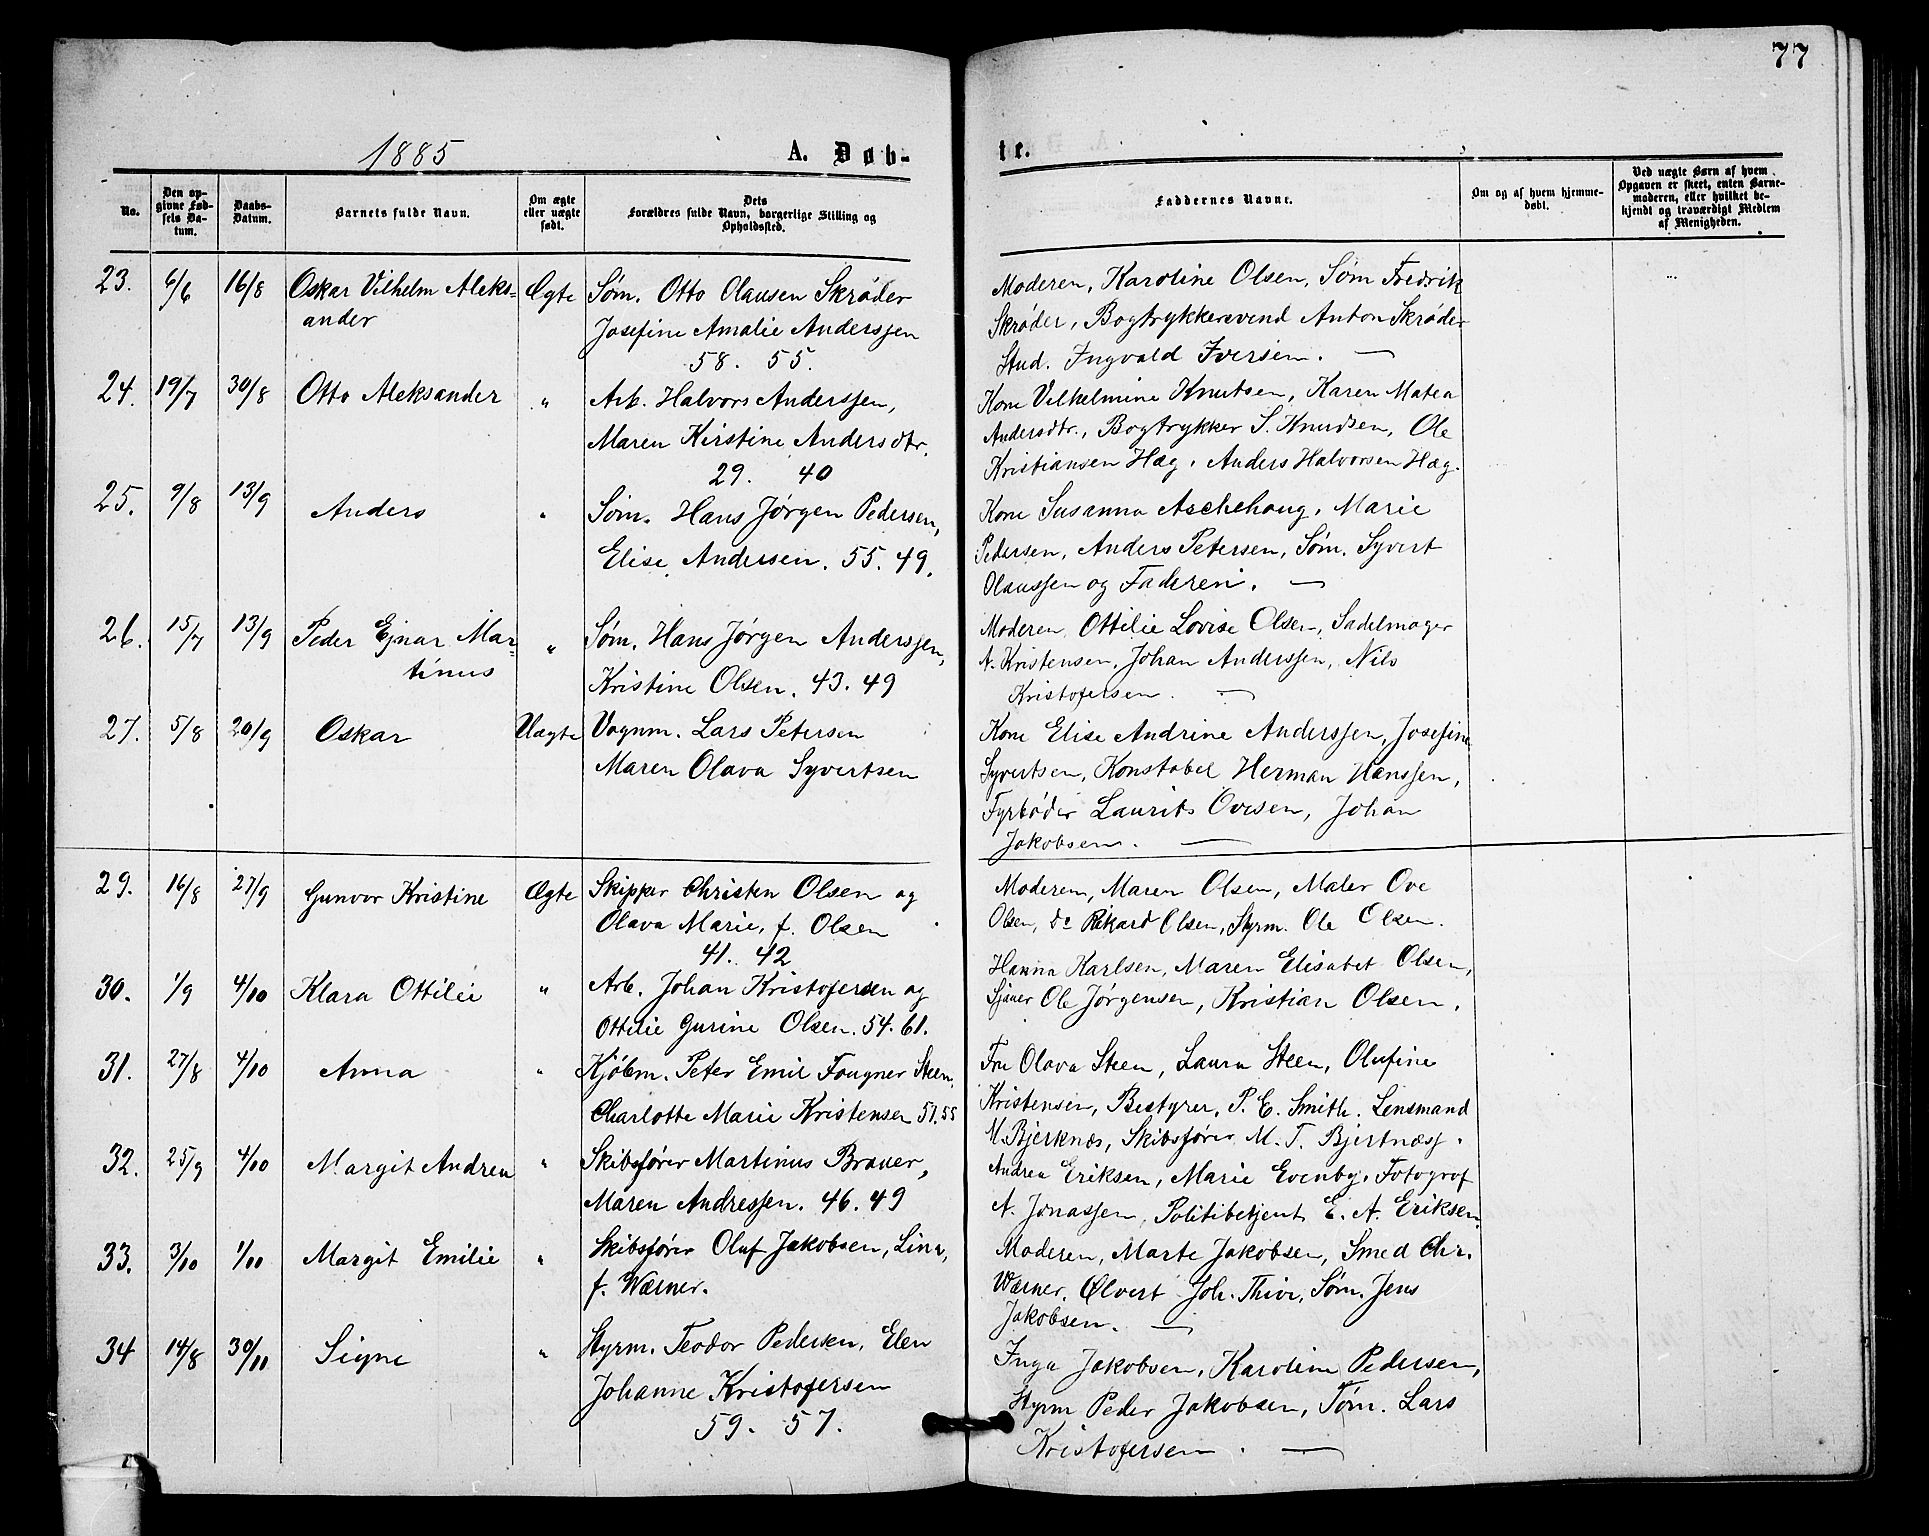 77
1885
A. Døb-
te.
No.
Den op-
givne Fød-
sels Da-
tum.
Daabs-
Datum.
Barnets fulde Navn.
Om ægte
eller uægte
født.
Dets
Forældres fulde Navn, borgerlige Stilling og
Opholdssted.
Faddernes Navne.
Om og af hvem hjemme-
døbt.
Ved uægte Børn af hvem
Opgaven er skeet, enten Barne-
moderen, eller hvilket be-
kjendt og troværdigt Medlem
af Menigheden.
23. 6/6 16/8 Oskar Vilhelm Aleks-
ander
Ægte
Søm. Otto Olausen Skrøder
Josefine Amalie Anderssen
58. 55.
Moderen, Karoline Olsen, Søm Fredrik
Skrøder, Bogtrykkersvend Anton Skrøder
Stud. Ingvald Iversen. —
24. 19/7 30/8 Otto Aleksander "
Arb. Halvors Anderssen,
Maren Kirstine Andersdtr.
29. 40
Kone Vilhelmine Knutsen, Karen Matea
Andersdtr., Bogtrykker S. Knudsen, Ole
Kristiansen Hæg, Anders Halvorsen Hæg.
25. 9/8 13/9 Anders "
Søm. Hans Jørgen Pedersen,
Elise Andersen. 55. 49.
Kone Susanna Aschehoug, Marie
Pedersen, Anders Petersen, Søm. Syvert
Olaussen og Faderen. —
26. 15/7 13/9 Peder Ejnar Mar-
tinus
"
Søm. Hans Jørgen Anderssen,
Kristine Olsen. 43. 49
Moderen, Ottilie Lovise Olsen, Sadelmager
A. Kristensen, Johan Anderssen, Nils
Kristofersen. —
27. 5/8 20/9 Oskar Uægte
Vognm. Lars Petersen
Maren Olava Syvertsen
Kone Elise Andrine Anderssen, Josefine
Syvertsen, Konstabel Herman Hanssen,
Fyrbøder Laurits Ovesen, Johan
Jakobsen. —
29. 16/8 27/9 Gunvor Kristine Ægte
Skipper Christen Olsen og
Olava Marie, f. Olsen
41. 42
Moderen, Maren Olsen, Maler Ove
Olsen, Do Rikard Olsen, Styrm. Ole Olsen.
30. 1/9 4/10 Klara Ottilie "
Arb. Johan Kristofersen og
Ottilie Gurine Olsen. 54. 61.
Hanna Karlsen, Maren Elisabet Olsen,
Sjauer Ole Jørgensen, Kristian Olsen.
31. 27/8 4/10 Anna "
Kjøbm. Peter Emil Fougner Steen,
Charlotte Marie Kristensen 51. 55
Fru Olava Steen, Laura Steen, Olufine
Kristensen, Bestyrer, P. E. Smith. Lensmand
M. Bjerknæs, Skibsfører M. T. Bjertnæss.
32. 25/9 4/10 Margit Andrea "
Skibsfører Martinus Brauer,
Maren Andressen. 46. 49
Andrea Eriksen, Marie Evenby, Fotograf
A. Jonassen, Politibetjent E. A. Eriksen
33. 3/10 1/10 Margit Emilie "
Skibsfører Oluf Jakobsen, Lina,
f. Wærner.
Moderen, Marte Jakobsen, Smed Chr.
Wærner, Ølvert Joh. Thive, Søm. Jens
Jakobsen. —
34 14/8 30/11 Signe "
Styrm. Teodor Pedersen, Elen
Johanne Kristofersen
59. 57.
Inga Jakobsen, Karoline Pedersen,
Styrm Peder Jakobsen, Tøm. Lars
Kristofersen. —